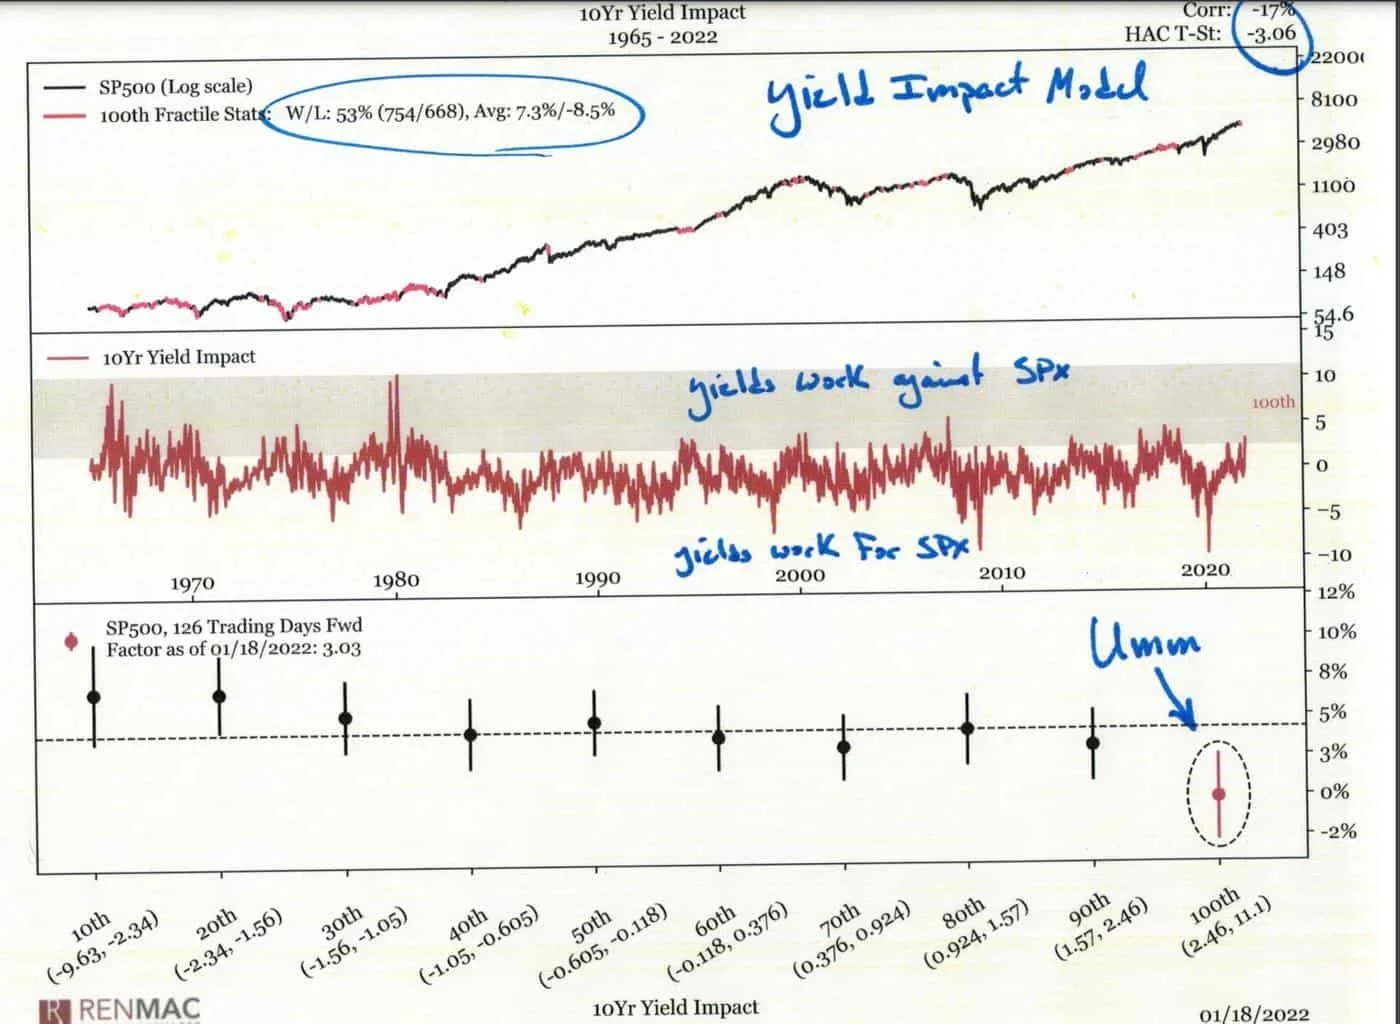 10Yr Yield Impact
1965 - 2022
Corr: -17%
HAC T-St: -3.06
SP500 (Log scale)
100th Fractile Stats: W/L: 53% (754/668), Avg: 7.3%/-8.5%
Yield Impact Model
22000
8100
2980
1100
403
148
54.6
10Yr Yield Impact
yields work against SPX
100th
yields work For SPX
15
10
5
0
-5
-10
1970
1980
1990
2000
2010
2020
SP500, 126 Trading Days Fwd
Factor as of 01/18/2022: 3.03
Umm
12%
10%
8%
5%
3%
0%
-2%
10th
(-9.63, -2.34)
20th
(-2.34, -1.56)
30th
(-1.56, -1.05)
40th
(-1.05, -0.605)
50th
(-0.605, -0.118)
60th
(-0.118, 0.376)
70th
(0.376, 0.924)
80th
(0.924, 1.57)
90th
(1.57, 2.46)
100th
(2.46, 11.1)
R RENMAC
10Yr Yield Impact
01/18/2022